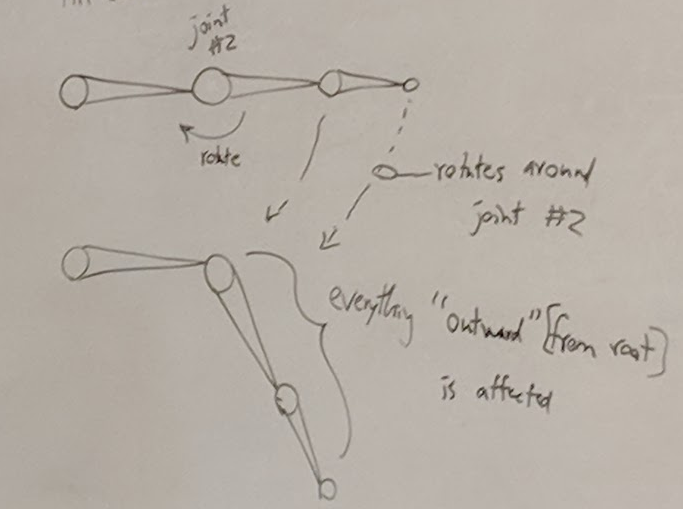 joint
#2
rotate
rotates around
joint #2
everything "outward" [from root]
is affected